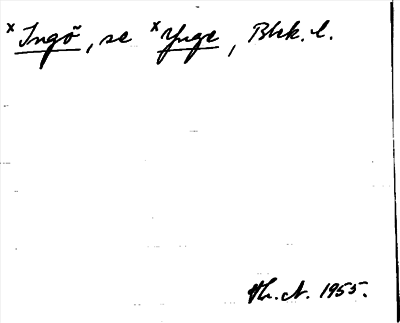 x Ingö, se x Ynge, Blek. l.
Th. A. 1955.